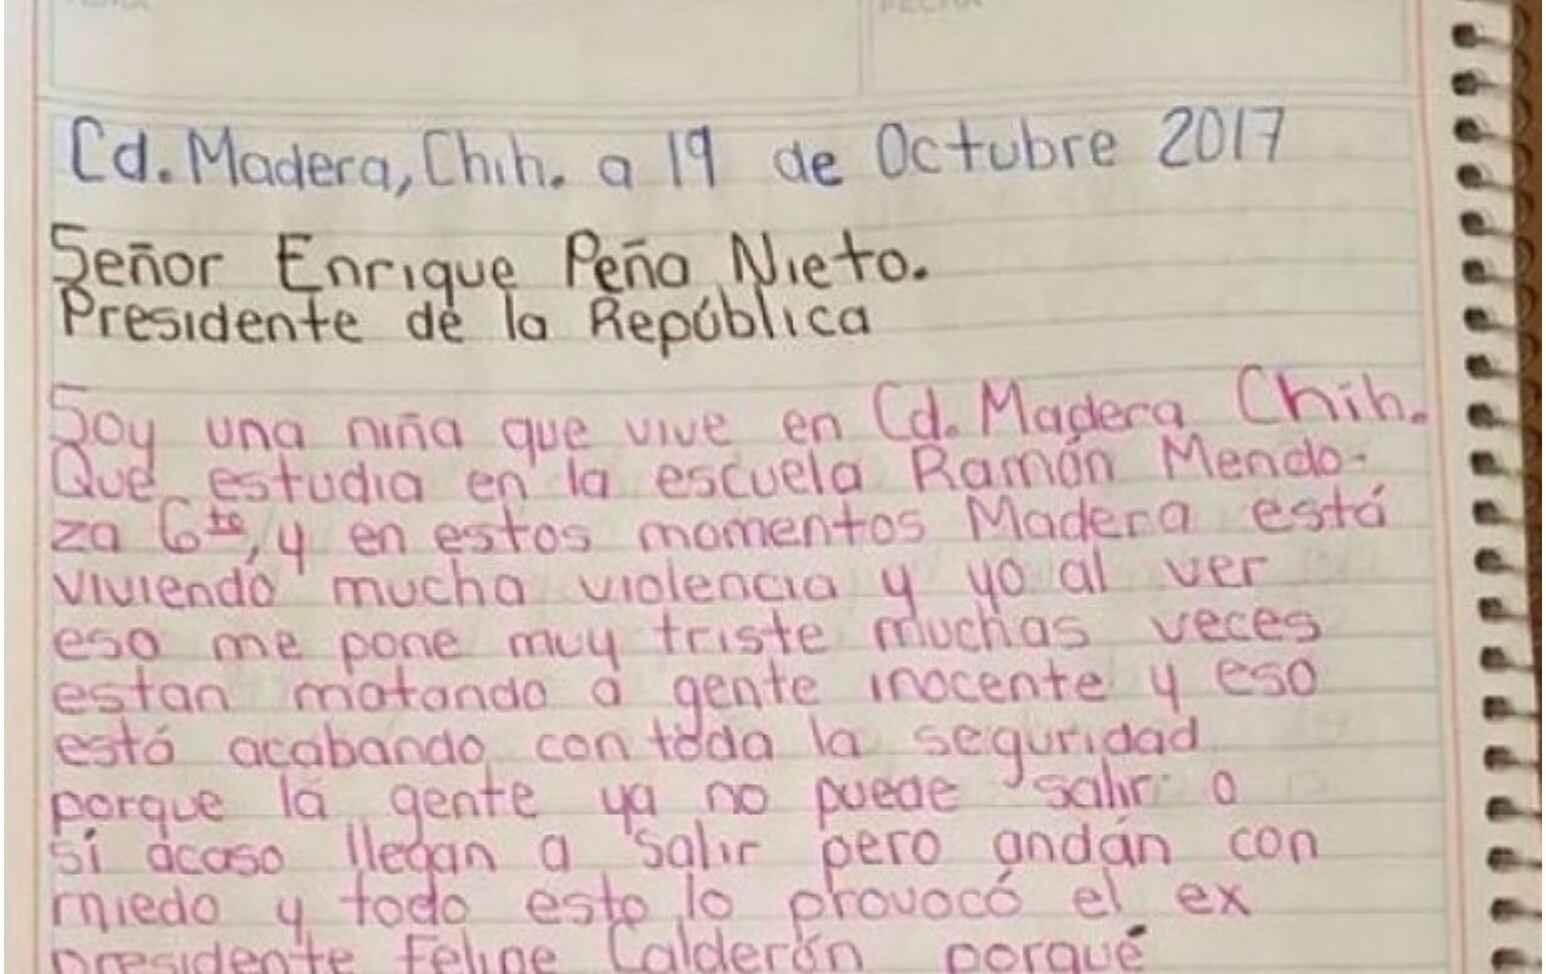 FECHA
Cd. Madera, Chih. a 19 de Octubre 2017
Señor Enrique Peña Nieto.
Presidente de la República
Soy una niña que vive en Cd. Madera Chih.
Que estudia en la escuela Ramón Mendo-
za 6to, y en estos momentos Madera está
viviendo mucha violencia y yo al ver
eso me pone muy triste muchas veces
estan matando a gente inocente y eso
está acabando con toda la seguridad
porque la gente ya no puede salir o
si acaso llegan a salir pero andán con
miedo y todo esto lo provocó el ex
presidente Felipe Calderón porqué